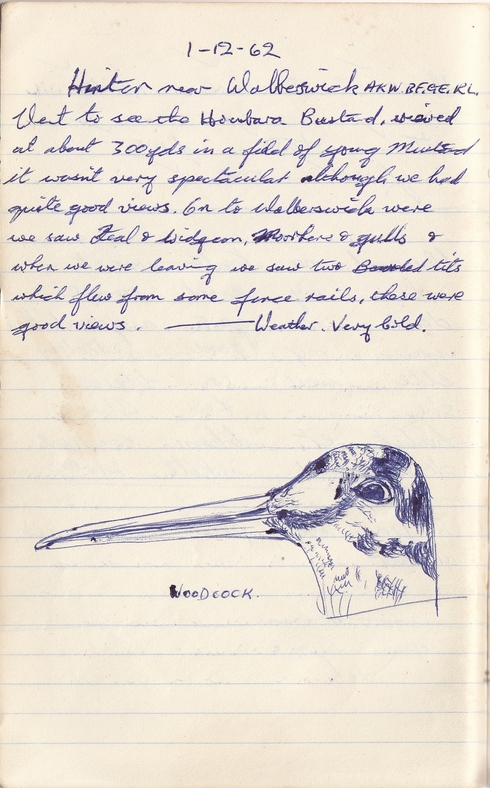 1-12-62
Hinton near Walberswick AKW. BF. GE. RL.
Vent to see the Houbara Bustard, viewed
at about 300yds in a field of young Mustard
it wasn't very spectacular although we had
quite good views. On to Walberswick were
we saw Teal & Widgeon, Moorhens & gulls &
when we were leaving we saw two Bearded tits
which flew from some fence rails, these were
good views. — Weather. Very Cold.
WOODCOCK.